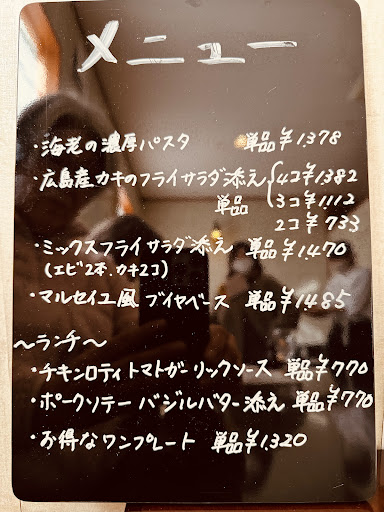 メニュー
・海老の濃厚パスタ 単品¥1,378
・広島産カキのフライサラダ添え 4コ¥1,382
単品 3コ¥1,112
2コ¥733
・ミックスフライサラダ添え 単品¥1,470
(エビ2本、カキ2コ)
・マルセイユ風ブイヤベース 単品¥1,485
〜ランチ〜
・チキンロティトマトガーリックソース 単品¥770
・ポークソテーバジルバター添え 単品¥770
・お得なワンプレート 単品¥1,320